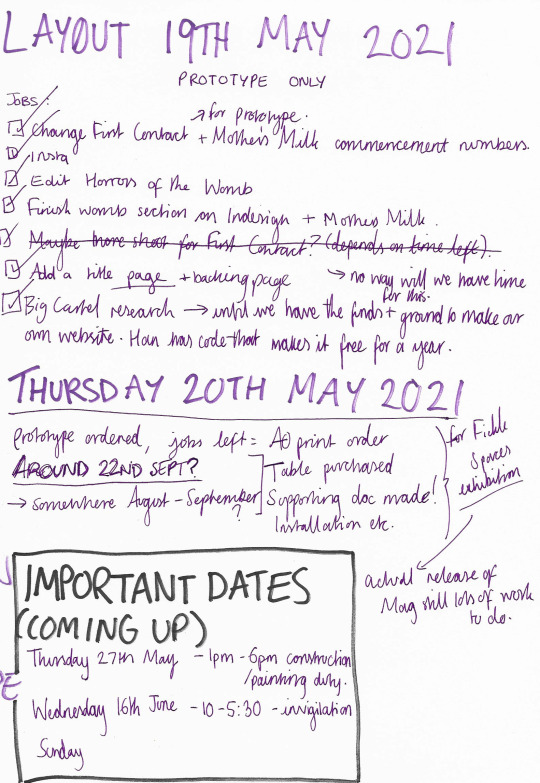 LAYOUT 19TH MAY 2021
PROTOTYPE ONLY
JOBS:
→ for prototype.
Change First Contact + Mother's Milk commencement numbers.
Insta
Edit Horrors of the Womb
Finish womb section on Indesign + Mothers Milk.
Maybe more shoot for First Contact? (depends on time left).
Add a title page + backing page → no way will we have time
for this.
Big Cartel research → until we have the funds + ground to make our
own website. Han has code that makes it free for a year.
THURSDAY 20TH MAY 2021
prototype ordered, jobs left = A0 print order
AROUND 22ND SEPT? Table purchased
→ somewhere August - September? Supporting doc made!
Installation etc.
for Fickle
Spaces
exhibition
actual release of
Mag still lots of work
to do.
IMPORTANT DATES
(COMING UP)
Thursday 27th May - 1pm - 6pm construction
/painting duty.
Wednesday 16th June - 10 - 5:30 - invigilation
Sunday